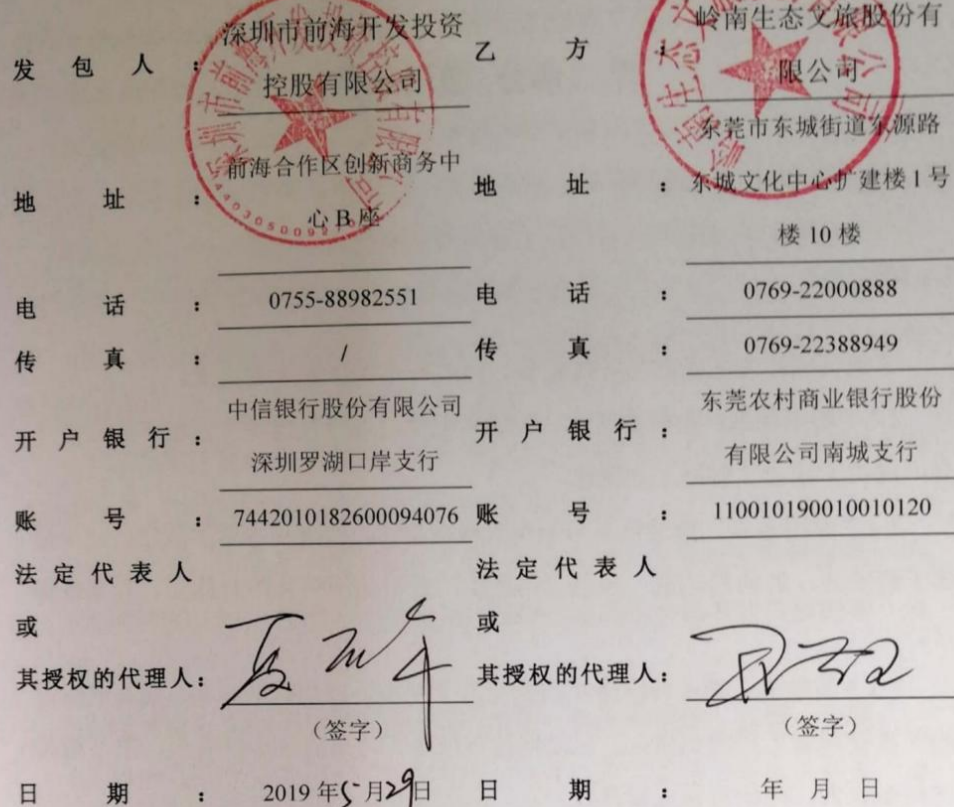 发包人：深圳市前海开发投资
控股有限公司
地址：前海合作区创新商务中
心 B 座
电话：0755-88982551
传真：/
开户银行：中信银行股份有限公司
深圳罗湖口岸支行
账号：7442010182600094076
法定代表人
或
其授权的代理人：
（签字）
日期：2019 年 5 月 29 日
乙方：岭南生态文旅股份有
限公司
地址：东莞市东城街道东源路
东城文化中心扩建楼 1 号
楼 10 楼
电话：0769-22000888
传真：0769-22388949
开户银行：东莞农村商业银行股份
有限公司南城支行
账号：110010190010010120
法定代表人
或
其授权的代理人：
（签字）
日期：年 月 日